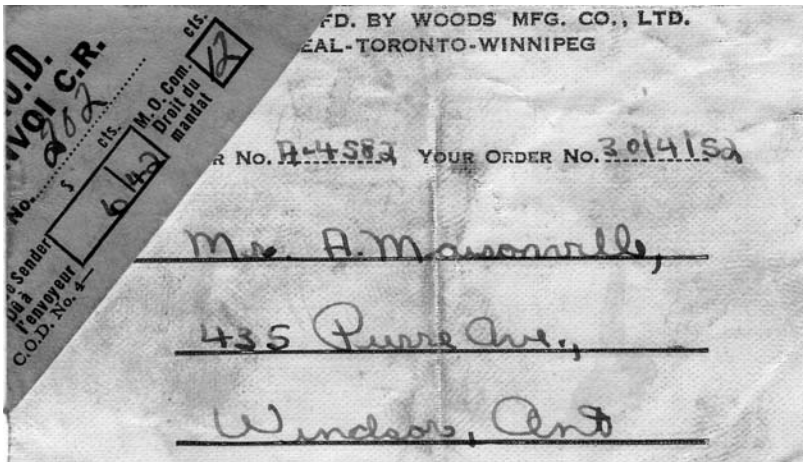 FD. BY WOODS MFG. CO., LTD.
EAL-TORONTO-WINNIPEG
R No. A-4582 YOUR ORDER No. 30/4/52
Mr. A. Maisonville,
435 Pierre Ave.,
Windsor, Ont
O.D.
NVOI C.R.
No. 202
$ cts. M.O. Com. cts.
Droit du
mandat 12
6 42
e Sender
Dû à
l'envoyeur
C.O.D. No. 4—